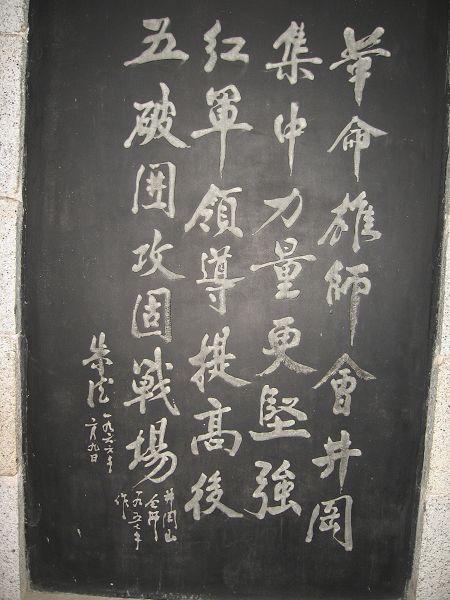 革命雄師會井岡
集中力量更堅強
紅軍領導提高後
五破圍攻固戰場
井岡山
会師
一九五七年
作
朱德
一九六六年
二月九日